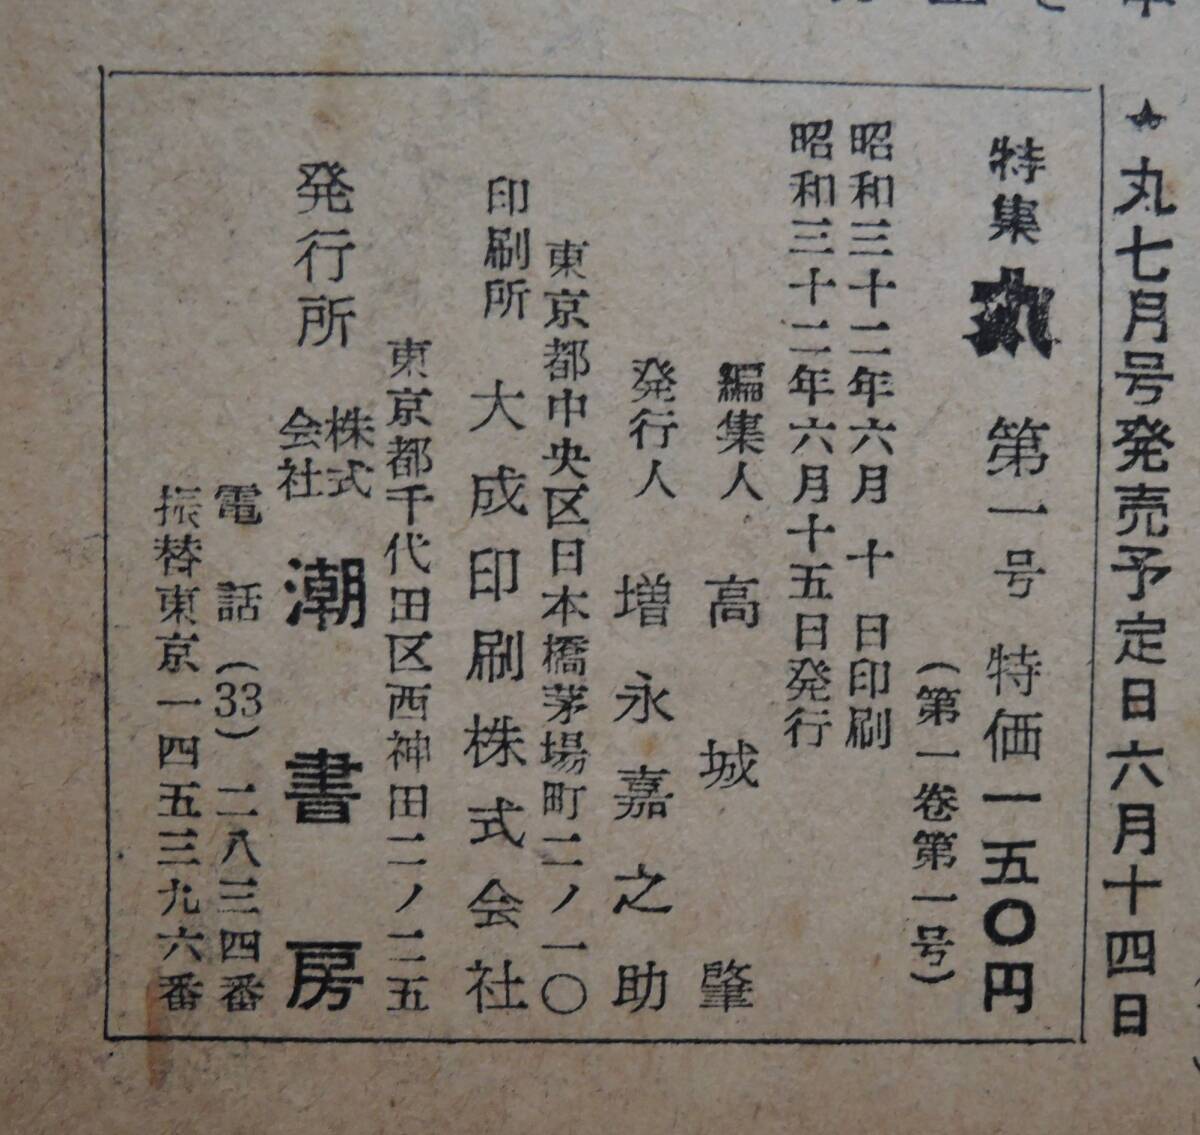 ★丸七月号発売予定日六月十四日
特集 丸 第一号 特価一五〇円
(第一巻第一号)
昭和三十二年六月 十 日印刷
昭和三十二年六月十五日発行
編集人 高城肇
発行人 増永嘉之助
東京都中央区日本橋茅場町二ノ一〇
印刷所 大成印刷株式会社
東京都千代田区西神田二ノ二五
発行所 株式会社 潮書房
電話(33)二八三四番
振替東京一四五三九六番